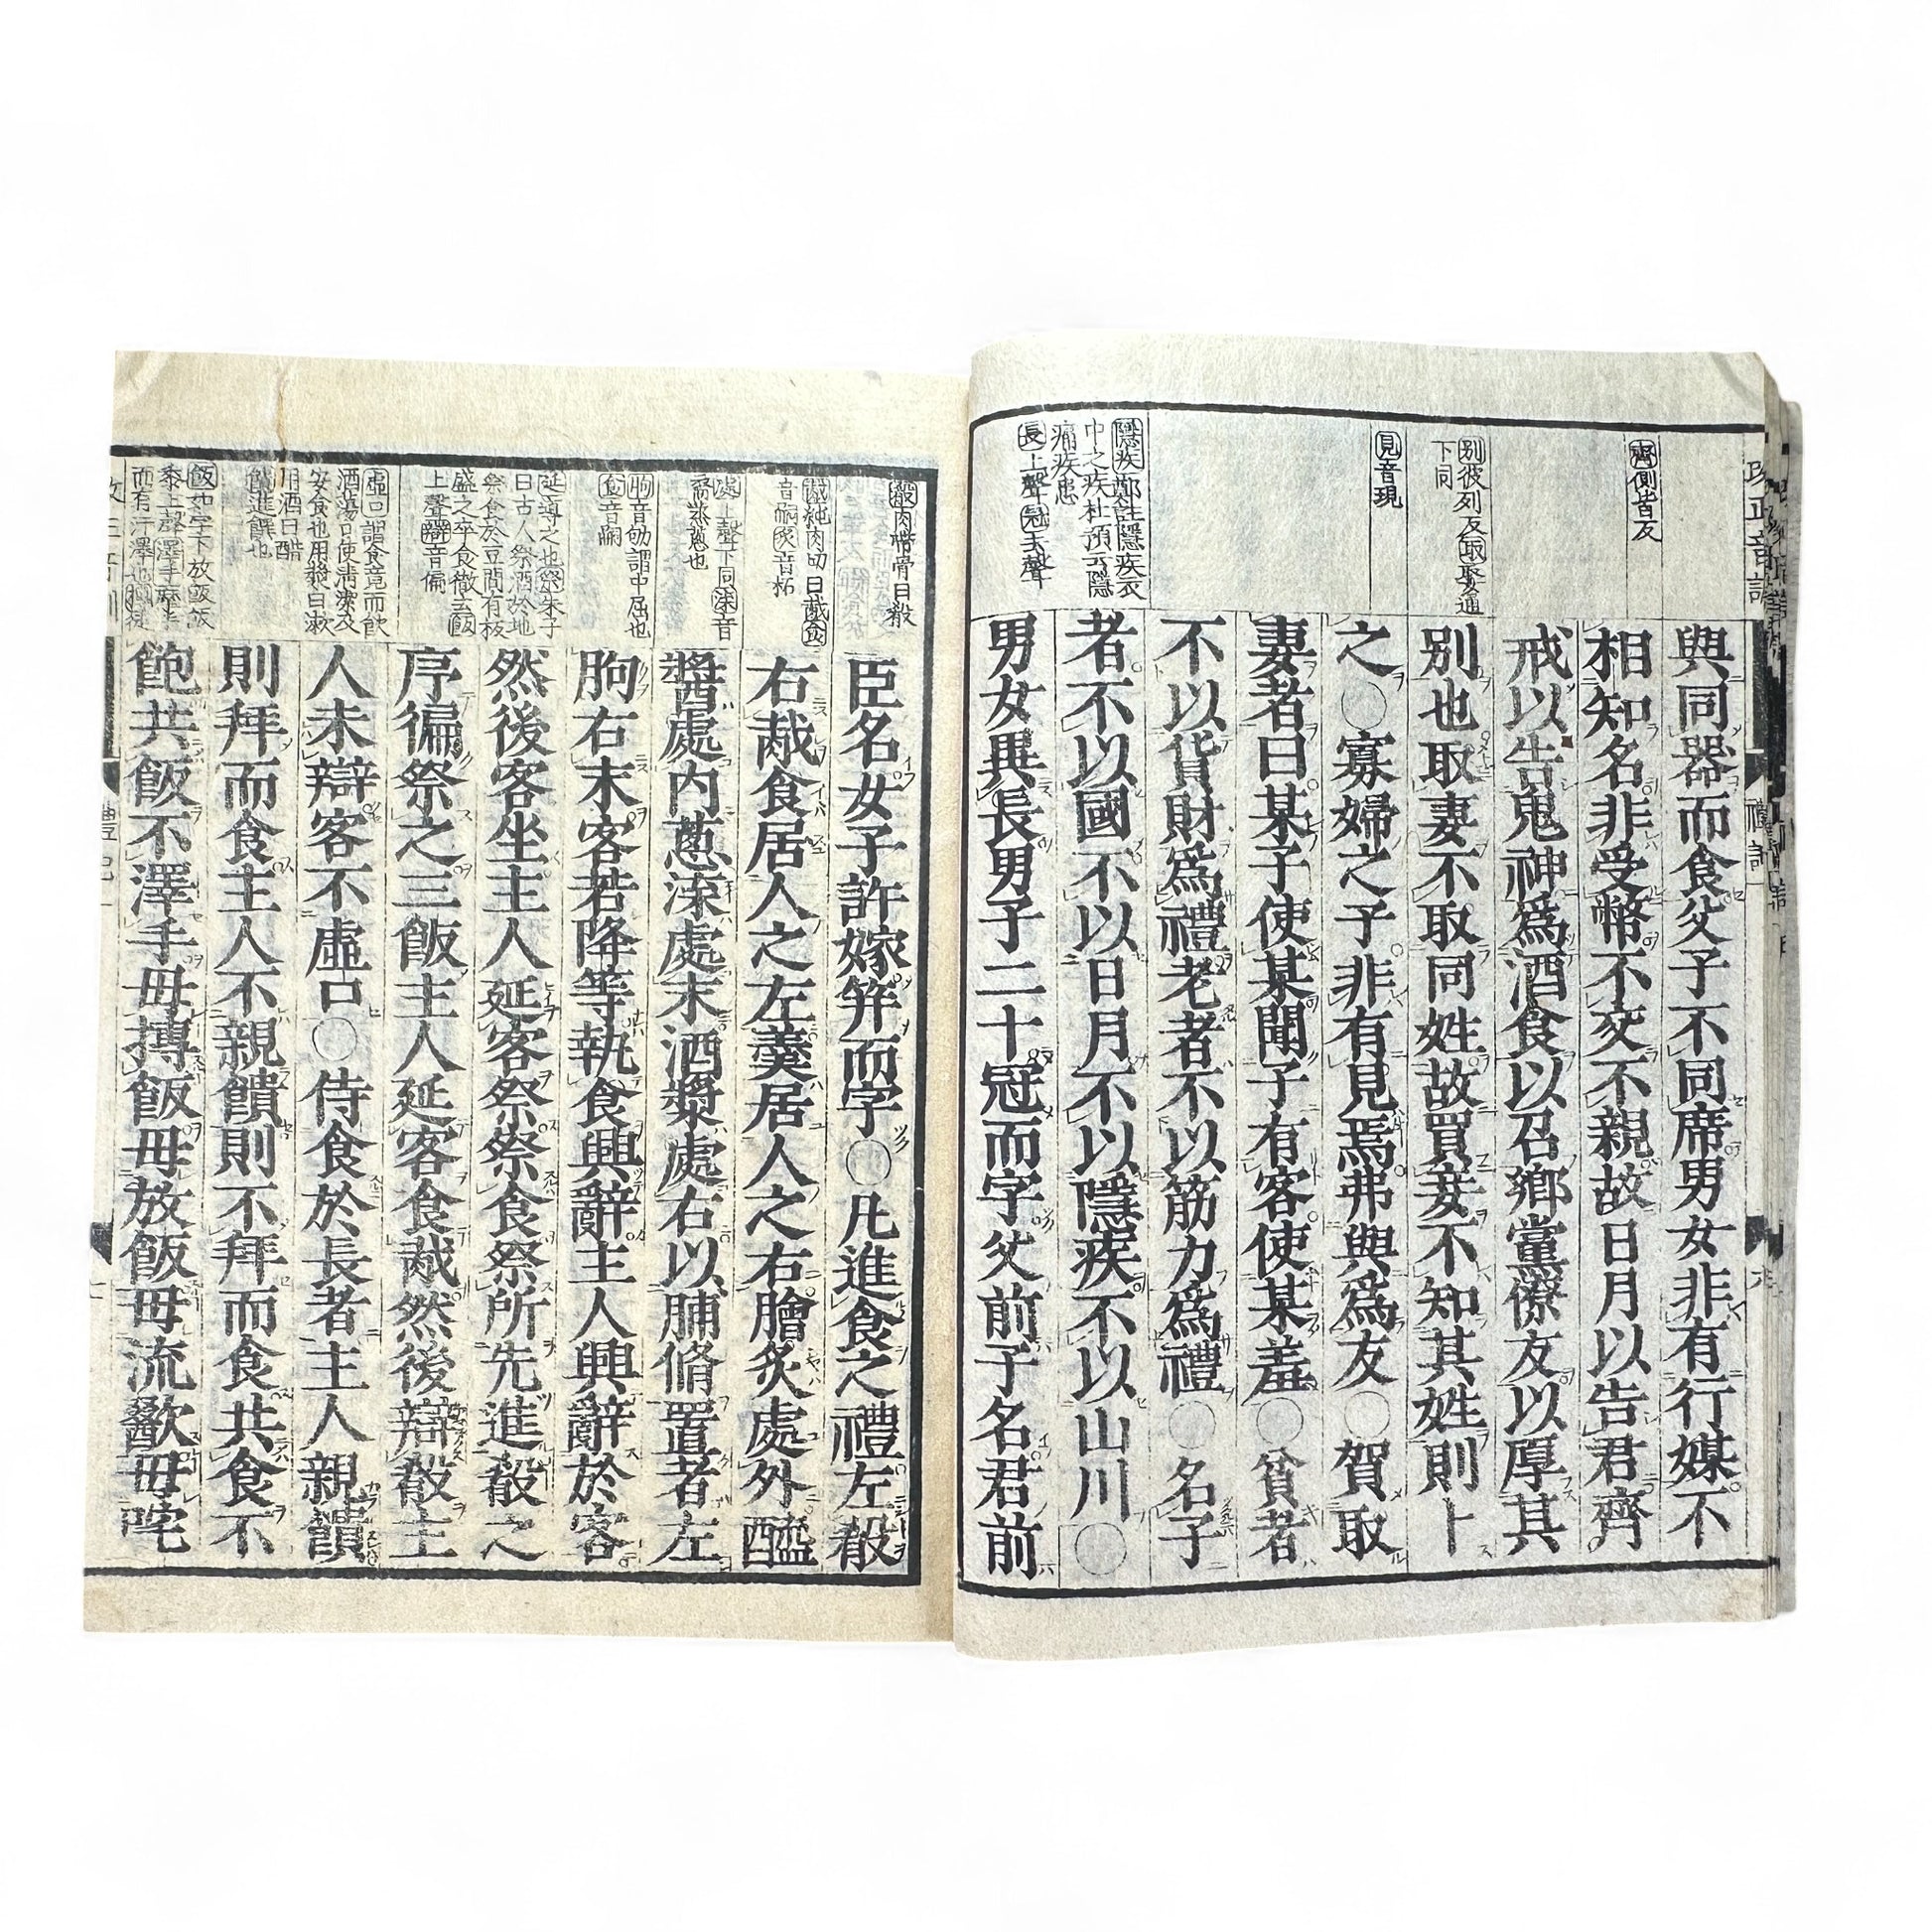 齊側皆反
別彼列反取娶通
下同
見音現
隱疾鄭註隱疾衣
中之疾杜預云隱
痛疾患
長上聲冠去聲
與同器而食父子不同席男女非有行媒不
相知名非受幣不交不親故日月以告君齊
戒以告鬼神爲酒食以召鄉黨僚友以厚其
別也取妻不取同姓故買妾不知其姓則卜
之○寡婦之子非有見焉弗與爲友○賀取
妻者曰某子使某聞子有客使某羞○貧者
不以貨財爲禮老者不以筋力爲禮○名子
者不以國不以日月不以隱疾不以山川○
男女異長男子二十冠而字父前子名君前
殽肉帶骨曰殽
胾純肉切曰胾食
音嗣炙音柘
處上聲下同渫音
裔蒸蔥也
朐音劬謂中屈也
食音嗣
延導之也祭朱子
曰古人祭酒於地
祭食於豆間有板
盛之卒食徹去飯
上聲辯音徧
虛口謂食竟而飲
酒蕩口使清潔及
安食也用漿曰漱
用酒曰酳
饋進饌也
飯如字下放飯飯
黍上聲澤手
而有汗澤也
臣名女子許嫁笄而字○凡進食之禮左殽
右胾食居人之左羹居人之右膾炙處外醯
醬處內蔥渫處末酒漿處右以脯脩置者左
朐右末客若降等執食興辭主人興辭於客
然後客坐主人延客祭祭食祭所先進殽之
序徧祭之三飯主人延客食胾然後辯殽主
人未辯客不虛口○侍食於長者主人親饋
則拜而食主人不親饋則不拜而食共食不
飽共飯不澤手毋摶飯毋放飯毋流歠毋咤